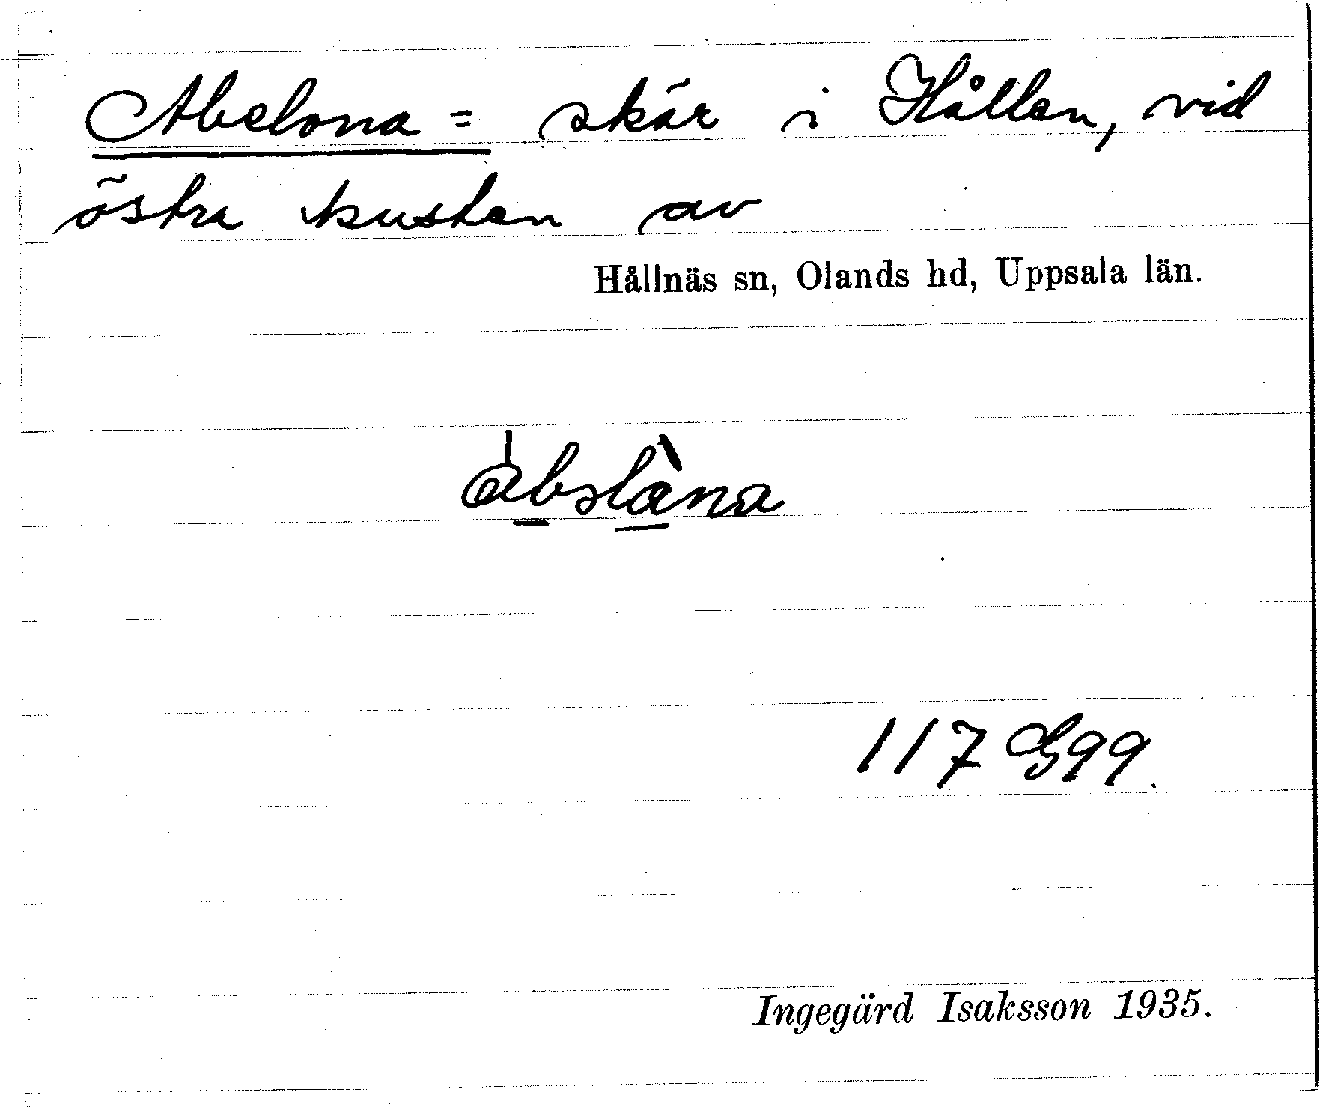 Abelona = skär i Hållen, vid
östra kusten av
Hållnäs sn, Olands hd, Uppsala län.
117 G99.
Ingegärd Isaksson 1935.